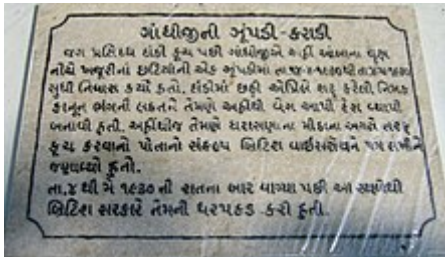 ગાંધીજીની ઝૂંપડી-કરાડી
જગ પ્રસિધ્ધ દાંડી કૂચ પછી ગાંધીજીએ અહીં આંબાના વૃક્ષ
નીચે ખજૂરીનાં છટિયાંની એક ઝૂંપડીમાં
સુધી નિવાસ કર્યો હતો. દાંડીમાં છઠ્ઠી એપ્રિલે શરૂ કરેલી નિમક
કાનૂન ભંગની લડતને તેમણે અહીંથી વેગ આપી દેશ વ્યાપી
બનાવી હતી. અહીંથીજ તેમણે ધરાસણાના મીઠાના અગરો તરફ
કૂચ કરવાનો પોતાનો સંકલ્પ બ્રિટિશ વાઈસરોયને પત્ર લખીને
જણાવ્યો હતો.
તા.૪ થી મે ૧૯૩૦ ની રાતના બાર વાગ્યા પછી આ સ્થળેથી
બ્રિટિશ સરકારે તેમની ધરપકડ કરી હતી.